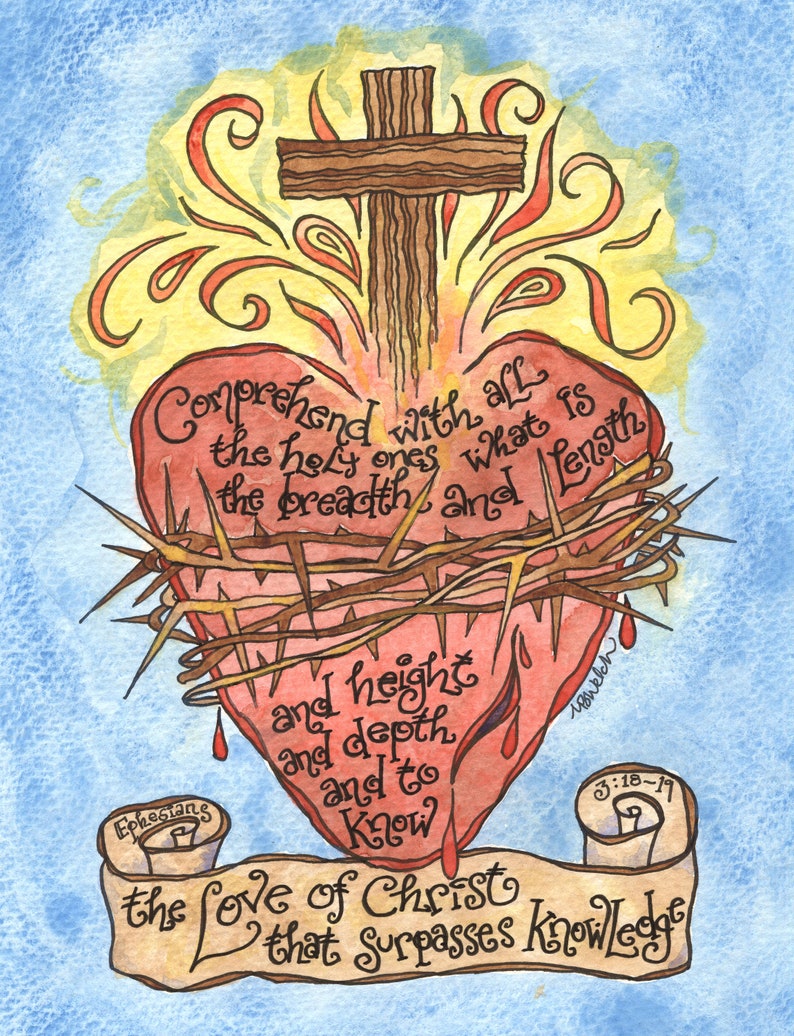 Comprehend with all
the holy ones what is
the breadth and Length
and height
and depth
and to
know
Ephesians
3:18-19
the Love of Christ
that surpasses knowledge